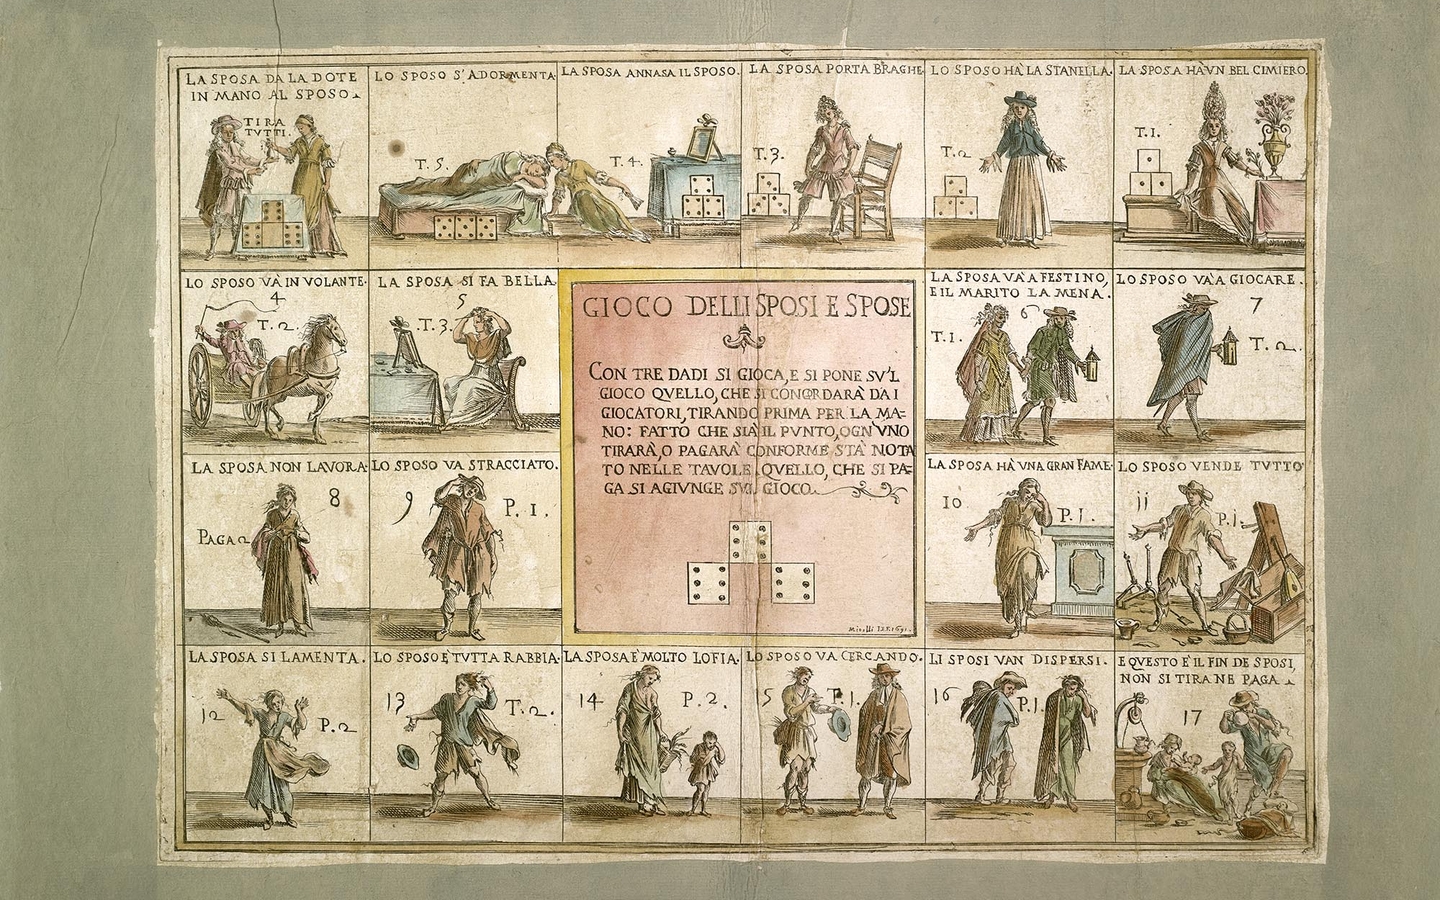 LA SPOSA DA LA DOTE
IN MANO AL SPOSO
TIRA
TVTTI.
LO SPOSO S'ADORMENTA
T. 5.
LA SPOSA ANNASA IL SPOSO.
T. 4.
LA SPOSA PORTA BRAGHE
T. 3.
LO SPOSO HÀ LA STANELLA.
T. 2
LA SPOSA HÀ VN BEL CIMIERO.
T. 1.
LO SPOSO VÀ IN VOLANTE.
4
T. 2.
LA SPOSA SI FA BELLA.
5
T. 3.
GIOCO DELLI SPOSI E SPOSE
CON TRE DADI SI GIOCA, E SI PONE SV'L
GIOCO QVELLO, CHE SI CONCORDARÀ DA I
GIOCATORI, TIRANDO PRIMA PER LA MA=
NO: FATTO CHE SIÀ IL PVNTO, OGN'VNO
TIRARÀ, O PAGARÀ CONFORME STÀ NOTA
TO NELLE TAVOLE, QVELLO, CHE SI PA=
GA SI AGIVNGE SVL GIOCO.
LA SPOSA VÀ A FESTINO,
E IL MARITO LA MENA.
6
T. 1.
LO SPOSO VÀ A GIOCARE.
7
T. 2.
LA SPOSA NON LAVORA
8
PAGA 2
LO SPOSO VA STRACCIATO.
9
P. 1.
LA SPOSA HÀ VNA GRAN FAME
10
P. 1.
LO SPOSO VENDE TVTTO
11
P. 1.
LA SPOSA SI LAMENTA.
12
P. 2
LO SPOSO È TVTTA RABBIA.
13
T. 2.
LA SPOSA È MOLTO LOFIA.
14
P. 2.
LO SPOSO VA CERCANDO.
15
T. 1.
LI SPOSI VAN DISPERSI.
16
P. 1.
E QVESTO È IL FIN DE SPOSI,
NON SI TIRA NE PAGA
17